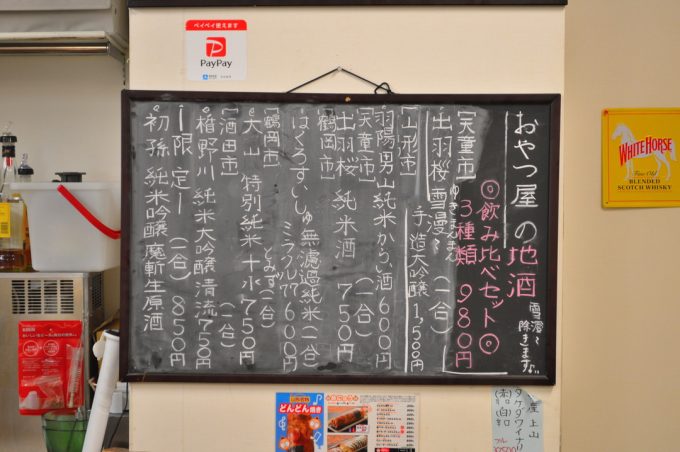 ペイペイ使えます
PayPay
おやつ屋の地酒
雪漫々
除きます。
◎飲み比べセット◎
3種類 980円
[天童市]
ゆきまんまん
出羽桜 雪漫々 (一合)
手造大吟醸 1,500円
[山形市]
羽陽男山 純米からい酒 (一合) 600円
[天童市]
出羽桜 純米酒 (一合) 750円
[鶴岡市]
はくろすいしゅ 無濾過純米 (一合)
ミラクル77 600円
[鶴岡市]
とみず (一合)
大山 特別純米 十水 750円
[酒田市]
(一合)
楯野川 純米大吟醸 清流 750円
ー限定ー (一合) 850円
初孫 純米吟醸 魔斬 生原酒
WHITE HORSE
Fine Old
BLENDED
SCOTCH WHISKY
どんどん焼き
上山
タケダワイナリー
(赤)(白)